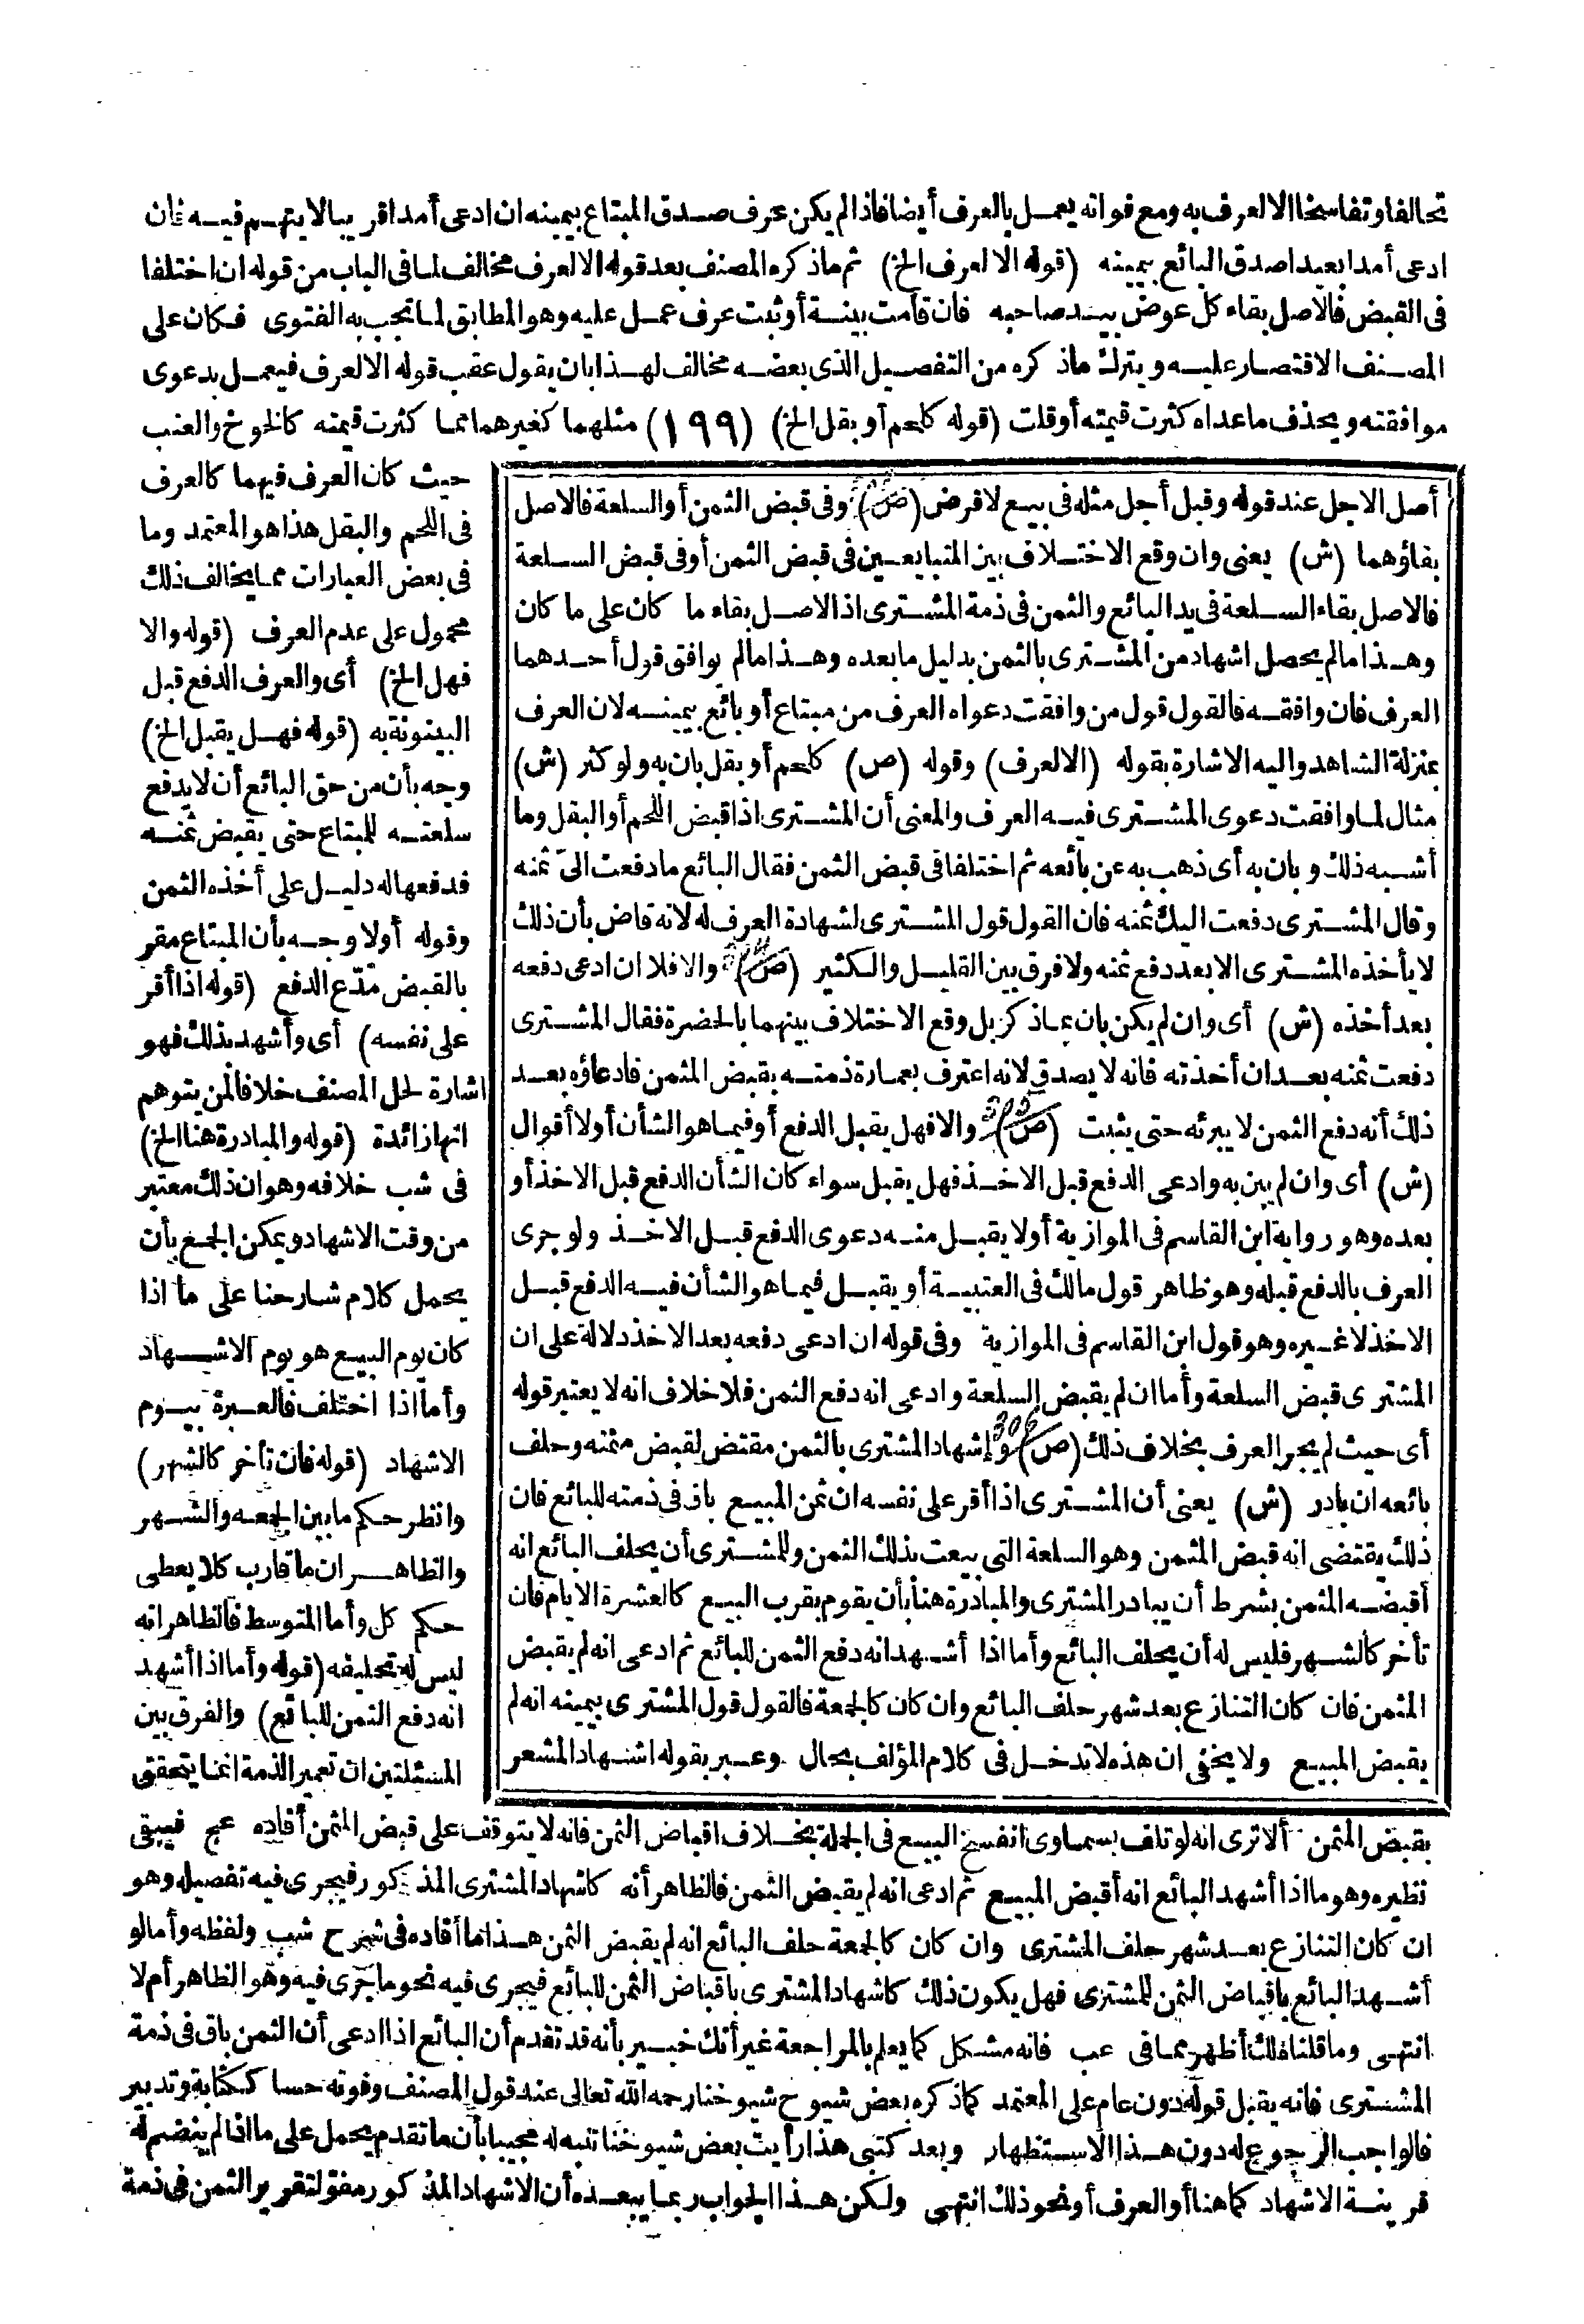 تحالفا وتفاسخا الا لعرف به ومع فواته يعمل بالعرف أيضا فاذا لم يكن عرف صدق المبتاع بيمينه ان ادعى أمدا قريبا لا يتهم فيه فان
ادعى أمدا بعيدا صدق البائع بيمينه (قوله الا لعرف الخ) ثم ماذكره المصنف بعد قوله الا لعرف مخالف لما فى الباب من قوله ان اختلفا
فى القبض فالاصل بقاء كل عوض بيد صاحبه فان قامت بينة أو ثبت عرف عمل عليه وهو المطابق لما تجب به الفتوى فكان على
المصنف الاقتصار عليه ويترك ماذكره من التفصيل الذى بعضه مخالف لهذا بان يقول عقب قوله الا لعرف فيعمل بدعوى
موافقته ويحذف ماعداه كثرت قيمته أو قلت (قوله كلحم أو بقل الخ) (١٩٩) مثلهما كغيرهما مما كثرت قيمته كالخوخ والعنب
حيث كان العرف فيهما كالعرف
فى اللحم والبقل هذا هو المعتمد وما
فى بعض العبارات مما يخالف ذلك
محمول على عدم العرف (قوله والا
فهل الخ) أى والعرف الدفع قبل
البينونة به (قوله فهل يقبل الخ)
وجه بأن من حق البائع أن لا يدفع
سلعته للمبتاع حتى يقبض ثمنه
فدفعها له دليل على أخذه الثمن
وقوله أولا وجه بأن المبتاع مقر
بالقبض مدّع الدفع (قوله اذا أقر
على نفسه) أى وأشهد بذلك فهو
اشارة لحل المصنف خلافا لمن يتوهم
انها زائدة (قوله والمبادرة هنا الخ)
فى شب خلافه وهو ان ذلك معتبر
من وقت الاشهاد ويمكن الجمع بأن
يحمل كلام شارحنا على ما اذا
كان يوم البيع هو يوم الاشهاد
وأما اذا اختلف فالعبرة بيوم
الاشهاد (قوله فان تأخر كالشهر)
وانظر حكم ما بين الجمعه والشهر
والظاهر ان ما قارب كلا يعطى
حكم كل وأما المتوسط فالظاهر انه
ليس له تحليفه (قوله وأما اذا أشهد
انه دفع الثمن للبائع) والفرق بين
المسئلتين ان تعمير الذمة انما يتحقق
أصل الاجل عند قوله وقبل أجل مثله فى بيع لا قرض (ص) وفى قبض الثمن أو السلعة فالاصل
بقاؤهما (ش) يعنى وان وقع الاختلاف بين المتبايعين فى قبض الثمن أو فى قبض السلعة
فالاصل بقاء السلعة فى يد البائع والثمن فى ذمة المشترى اذ الاصل بقاء ما كان على ما كان
وهذا ما لم يحصل اشهاد من المشترى بالثمن بدليل ما بعده وهذا ما لم يوافق قول أحدهما
العرف فان وافقه فالقول قول من وافقت دعواه العرف من مبتاع أو بائع بيمينه لان العرف
بمنزلة الشاهد واليه الاشارة بقوله (الا لعرف) وقوله (ص) كلحم أو بقل بان به ولو كثر (ش)
مثال لما وافقت دعوى المشترى فيه العرف والمعنى أن المشترى اذا قبض اللحم أو البقل وما
أشبه ذلك وبان به أى ذهب به عن بائعه ثم اختلفا فى قبض الثمن فقال البائع ما دفعت الىّ ثمنه
وقال المشترى دفعت اليك ثمنه فان القول قول المشترى لشهادة العرف له لانه قاض بأن ذلك
لا يأخذه المشترى الا بعد دفع ثمنه ولا فرق بين القليل والكثير (ص) والا فلا ان ادعى دفعه
بعد أخذه (ش) أى وان لم يكن بان بماذكر بل وقع الاختلاف بينهما بالحضرة فقال المشترى
دفعت ثمنه بعد ان أخذته فانه لا يصدق لانه اعترف بعمارة ذمته بقبض المثمن فادعاؤه بعد
ذلك أنه دفع الثمن لا يبرئه حتى يثبت (ص) والا فهل يقبل الدفع أو فيما هو الشأن أولا أقوال
(ش) أى وان لم يبن به وادعى الدفع قبل الاخذ فهل يقبل سواء كان الشأن الدفع قبل الاخذ أو
بعده وهو رواية ابن القاسم فى الموازية أو لا يقبل منه دعوى الدفع قبل الاخذ ولو جرى
العرف بالدفع قبله وهو ظاهر قول مالك فى العتبية أو يقبل فيما هو الشأن فيه الدفع قبل
الاخذ لا غيره وهو قول ابن القاسم فى الموازية وفى قوله ان ادعى دفعه بعد الاخذ دلالة على ان
المشترى قبض السلعة وأما ان لم يقبض السلعة وادعى انه دفع الثمن فلا خلاف انه لا يعتبر قوله
أى حيث لم يجر العرف بخلاف ذلك (ص) وإشهاد المشترى بالثمن مقتض لقبض مثمنه وحلف
بائعه ان بادر (ش) يعنى أن المشترى اذا أقر على نفسه ان ثمن المبيع باق فى ذمته للبائع فان
ذلك يقتضى انه قبض المثمن وهو السلعة التى بيعت بذلك الثمن وللمشترى أن يحلف البائع انه
أقبضه المثمن بشرط أن يبادر المشترى والمبادرة هنا بأن يقوم بقرب البيع كالعشرة الايام فان
تأخر كالشهر فليس له أن يحلف البائع وأما اذا أشهد انه دفع الثمن للبائع ثم ادعى انه لم يقبض
المثمن فان كان التنازع بعد شهر حلف البائع وان كان كالجمعة فالقول قول المشترى بيمينه انه لم
يقبض المبيع ولا يخفى ان هذه لا تدخل فى كلام المؤلف بحال وعبر بقوله اشهاد المشعر
بقبض المثمن ألا ترى انه لو تلف بسماوى انفسخ البيع فى الجملة بخلاف اقباض الثمن فانه لا يتوقف على قبض المثمن أفاده عج فيبقى
نظيره وهو ما اذا أشهد البائع انه أقبض المبيع ثم ادعى انه لم يقبض الثمن فالظاهر أنه كاشهاد المشترى المذكور فيجرى فيه تفصيله وهو
ان كان التنازع بعد شهر حلف المشترى وان كان كالجمعة حلف البائع انه لم يقبض الثمن هذا ما أفاده فى شرح شب ولفظه وأما لو
أشهد البائع باقباض الثمن للمشترى فهل يكون ذلك كاشهاد المشترى باقباض الثمن للبائع فيجرى فيه نحو ما جرى فيه وهو الظاهر أم لا
انتهى وما قلناه لك أظهر مما فى عب فانه مشكل كما يعلم بالمراجعة غير أنك خبير بأنه قد تقدم أن البائع اذا ادعى أن الثمن باق فى ذمة
المشترى فانه يقبل قوله دون عام على المعتمد كماذكره بعض شيوخ شيوخنا رحمه الله تعالى عند قول المصنف وفوته حسا ككتابة وتدبير
فالواجب الرجوع له دون هذا الاستظهار وبعد كتبى هذا رأيت بعض شيوخنا تنبه له مجيبا بأن ما تقدم يحمل على ما اذا لم ينضم له
قرينة الاشهاد كما هنا أو العرف أو نحو ذلك انتهى ولكن هذا الجواب ربما يبعده أن الاشهاد المذكور مقوّ لتقرير الثمن فى ذمة